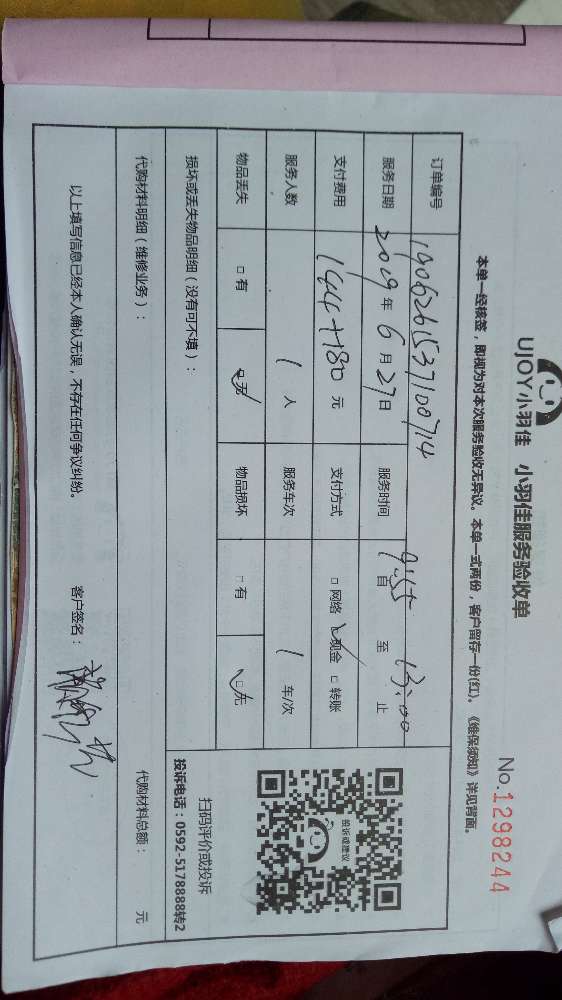 UJOY小羽佳 小羽佳服务验收单
No.1298244
本单一经核签，即视为对本次服务验收无异议。本单一式两份，客户留存一份(红)。《维保须知》详见背面。
订单编号 1906261537100714
服务日期 2019年6月27日 服务时间 9:55自 至 13:00止
支付费用 144+180元 支付方式 □网络 ☑现金 □转账
服务人数 1人 服务车次 1车/次
物品丢失 □有 ☑无 物品损坏 □有 ☑无
投诉或建议
扫码评价或投诉
投诉电话：0592-5178888转2
损坏或丢失物品明细（没有可不填）：
代购材料明细（维修业务）： 代购材料总额： 元
以上填写信息已经本人确认无误，不存在任何争议纠纷。 客户签名：